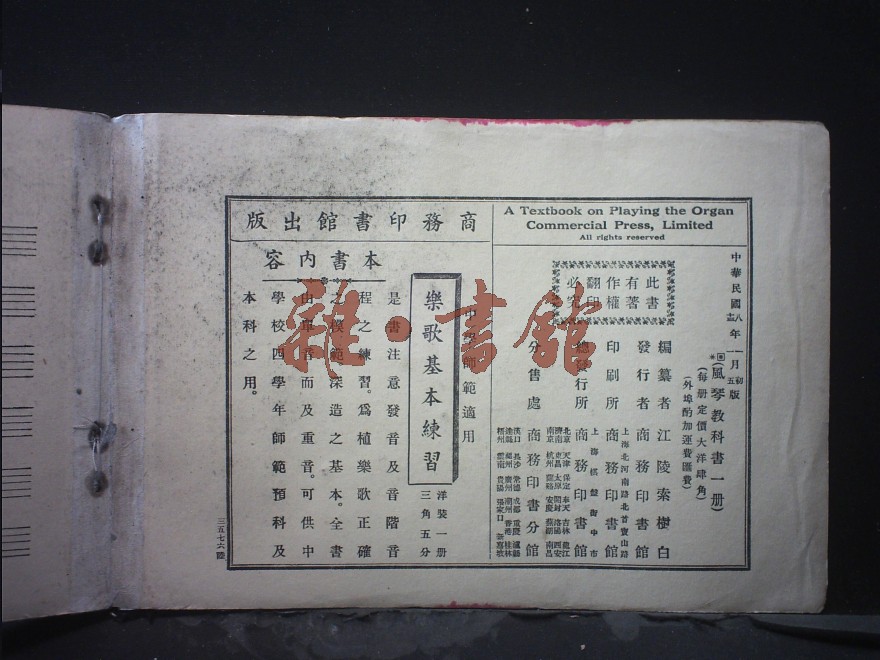 A Textbook on Playing the Organ
Commercial Press, Limited
All rights reserved
中華民國八年一月初版
十三 五
(風琴教科書一册)
(每册定價大洋肆角)
(外埠酌加運費匯費)
此書
有著
作權
翻印
必究
編纂者 江陵索樹白
發行者 商務印書館
印刷所 商務印書館
上海北河南路北首寶山路
總發行所 商務印書館
上海棋盤街中市
分售處 商務印書分館
商務印書館出版
中學師範適用
樂歌基本練習
洋裝一册
三角五分
本書內容
是書注意發音及音階音
程之練習。爲植樂歌正確
之模範深造之基本。全書
由單音而及重音。可供中
學校四學年師範預科及
本科之用。
三五七六陸
雜·書館